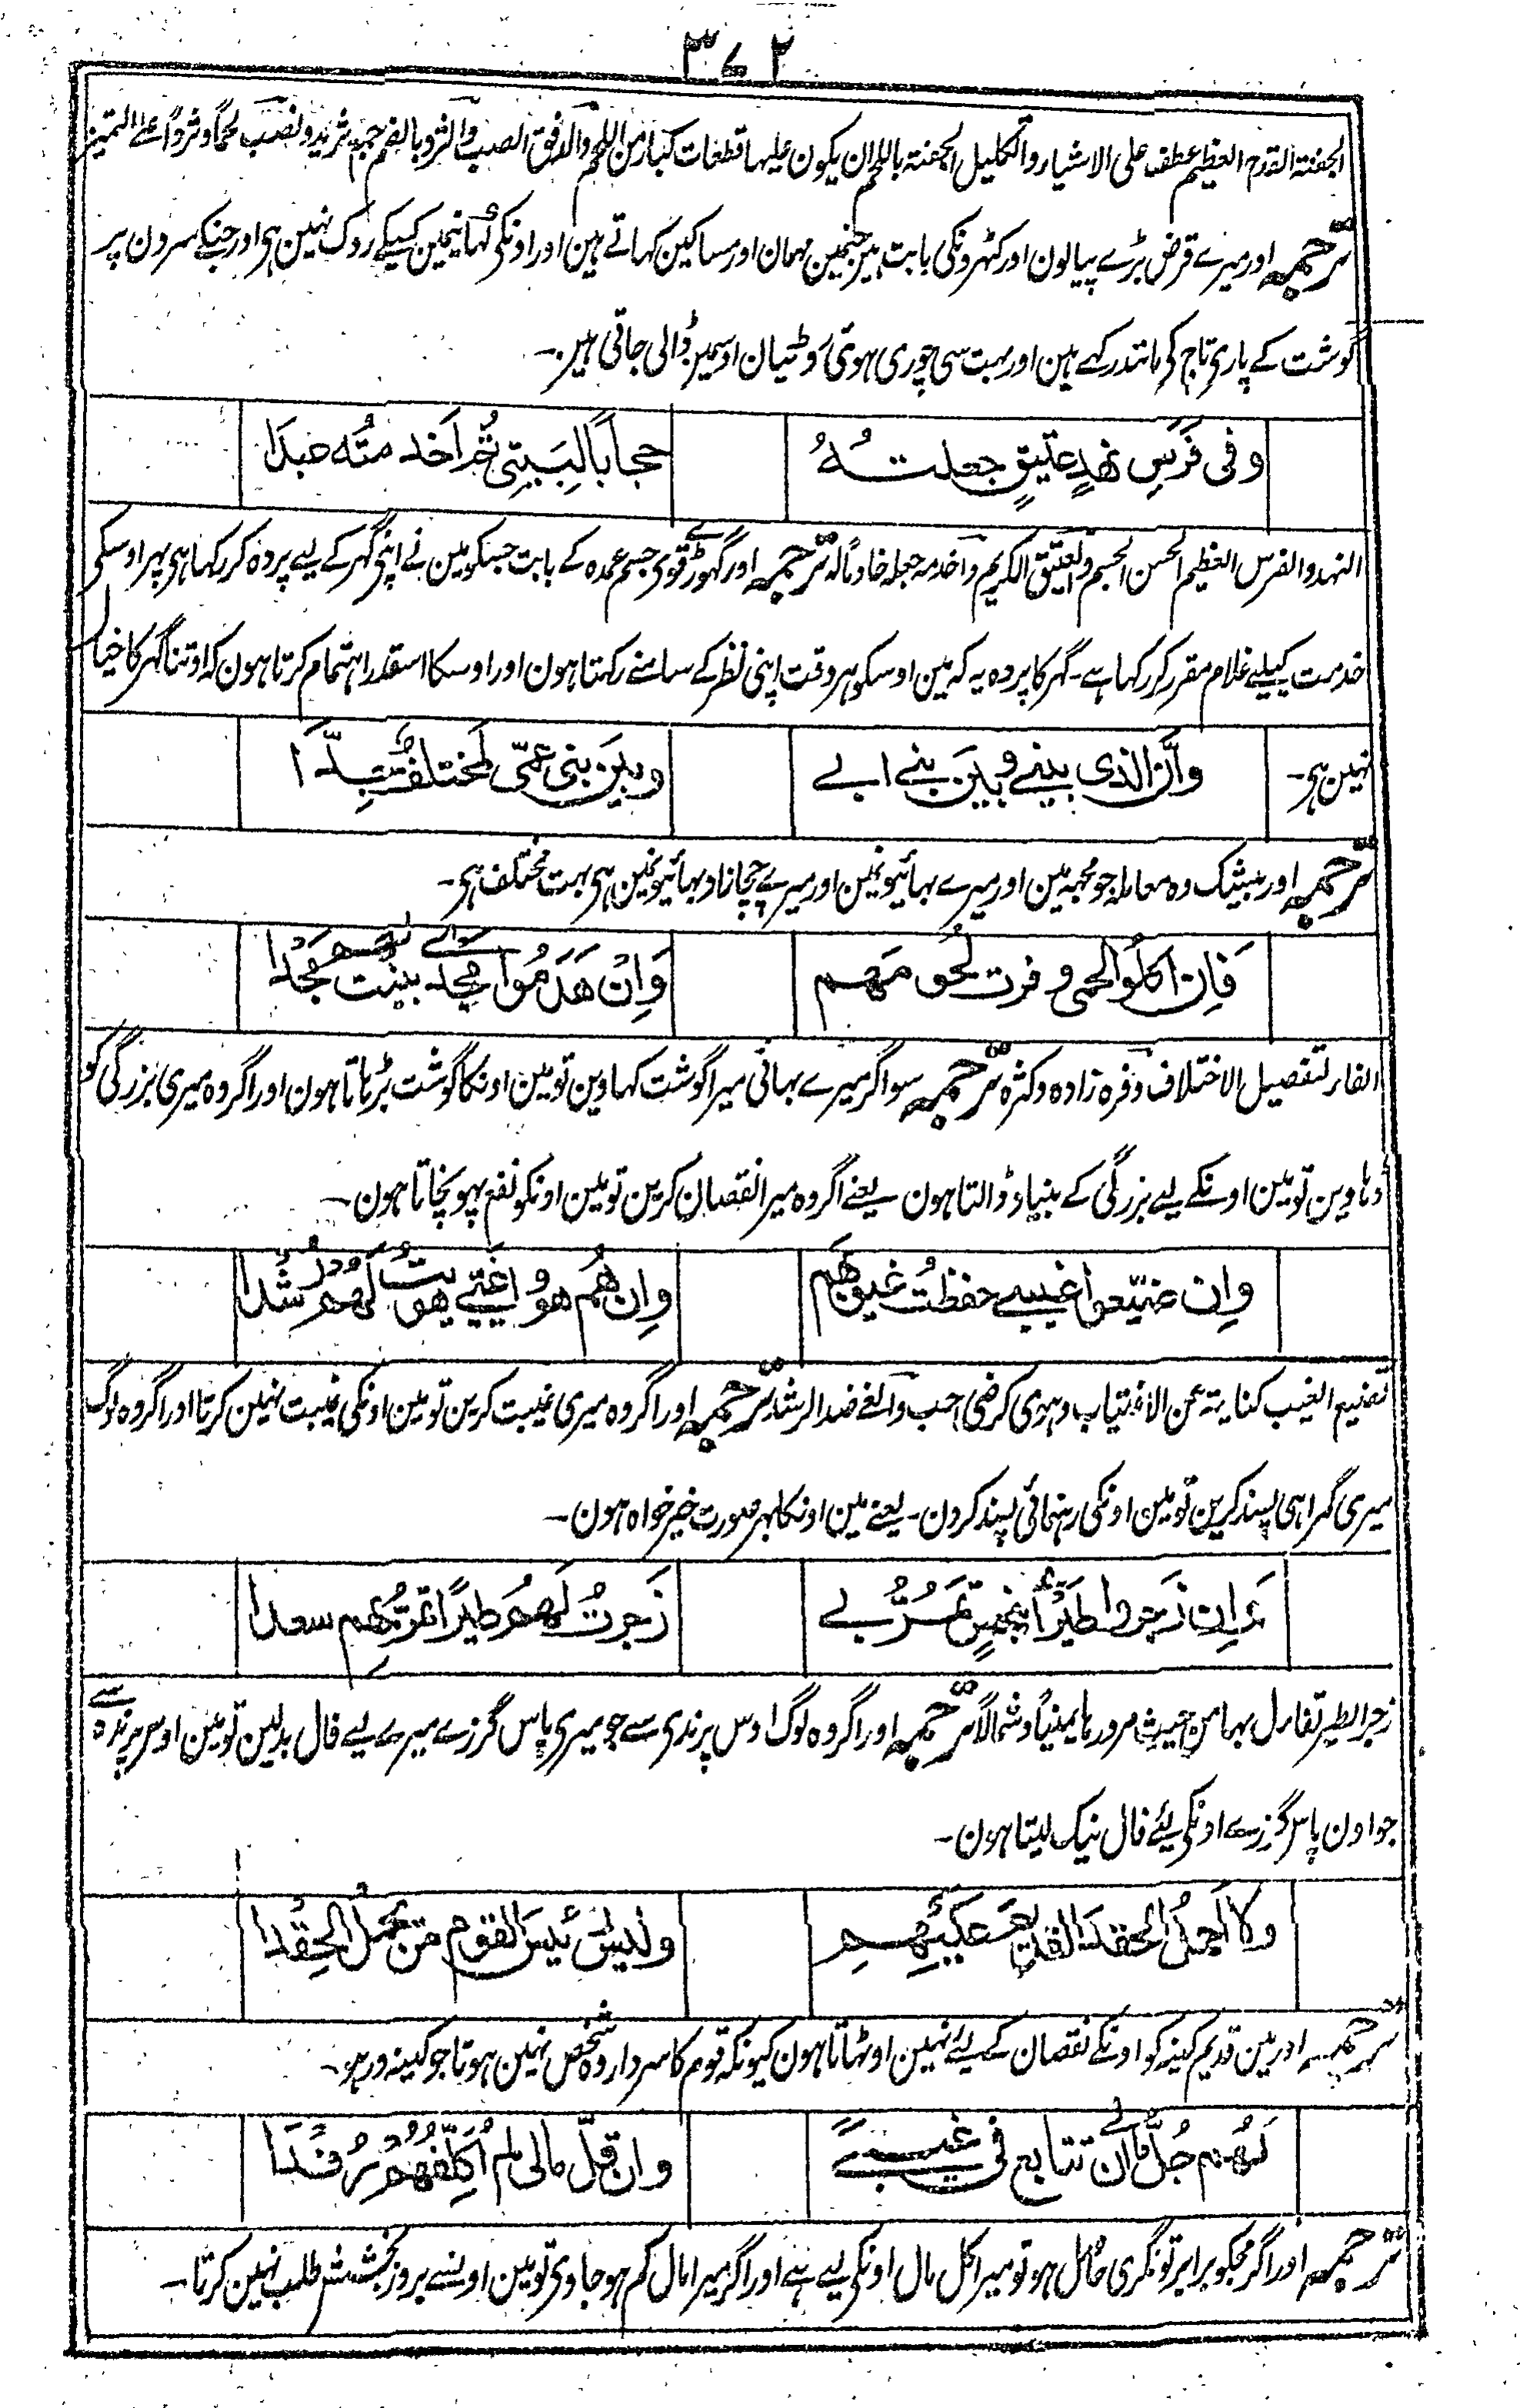 ۳۷۲
الجفنة القدح العظیم عطف علی الاشیاء والتکلیل الجفنة باللحم ان یکون علیہا قطعات کبار من اللحم والدفق الصب والثرد بالضم جمع ثرید ونصب لحماً وثرداً علے التمیز
ترجمہ اور میرے قرض بڑے پیالون اور کٹہرونکی بابت ہین جنمین مہمان اور مساکین کہاتے ہین اور اونکی کہانیمین کسیکے روک نہین ہی اور جنکے سرون پر
گوشت کے پاری تاج کی مانند رکہے ہین اور بہت سی چوری ہوئی روٹیان اوسمین ڈالی جاتی ہین۔
وفی فَرَسٍ نَهدٍ عَتیقٍ جعلتُهُ حجاباً لِبَیتِی ثُمَّ اَخدمتُه عبدَا
النہد والفرس العظیم الحسن الجسم والعتیق الکریم واخدمہ جعلہ خادماً لہ ترجمہ اور گہوڑے قوی جسم عمدہ کے بابت جسکو مین نے اپنی گہر کے لیے پردہ کر رکہا ہی پہر اوسکی
خدمت کیلیے غلام مقرر کر رکہا ہے۔ گہر کا پردہ یہ کہ مین اوسکو ہر وقت اپنی نظر کے سامنے رکہتا ہون اور اوسکا اسقدر اہتمام کرتا ہون کہ اوتنا گہر کا خیال
نہین ہی۔ وَاِنَّ الذی بینے وبَینَ بنے ابے وبَینَ بنی عَمّی لَمختلفٌ جِدّاً
ترجمہ اور بیشک وہ معاملہ جو مجہ مین اور میرے بہائیونمین اور میرے چچازاد بہائیونمین ہی بہت مختلف ہی۔
فَاِن اکلُوا لحمی وفرت لُحومَهم وَاِنْ هَدَمُوا مجدے بنیت لهم مَجْدَا
الفاء لتفصیل الاختلاف وفرہ زادہ وکثرہ ترجمہ سو اگر میرے بہائی میرا گوشت کہاوین تو مین اونکا گوشت بڑہاتا ہون اور اگر وہ میری بزرگی کو
ڈہاوین تو مین اونکے لیے بزرگی کے بنیاد ڈالتا ہون یعنے اگر وہ میرا نقصان کرین تو مین اونکو نفع پہونچاتا ہون۔
وِان ضَیَّعوا غیبے حفظتُ غیوبَهم وِان هُم هووا غَیّے هویتُ لَهُم رُشْدَا
تضییع الغیب کنایة عن الاغتیاب وہوی کرضی احب والغے ضد الرشد ترجمہ اور اگر وہ میری غیبت کرین تو مین اونکی غیبت نہین کرتا اور اگر وہ لوگ
میری گمراہی پسند کرین تو مین اونکی رہنمائی پسند کردن۔ یعنے مین اونکا بہر صورت خیر خواہ ہون۔
وَاِن زَجروا طَیراً بِنَحسٍ تَمُرُّ بے زَجرتُ لَهم طَیراً تمرُّ بِهم سعدا
زجر الطیر تفاءل بہا من حیث مرورہا یمیناً وشمالاً ترجمہ اور اگر وہ لوگ اوس پرندی سے جو میری پاس گزرے میرے لیے فال بد لین تو مین اوس پرندہ سے
جو اون پاس گزرے اونکی لئے فال نیک لیتا ہون۔
ولا اَحمِلُ الحقدَ القدیمَ عَلَیهِم ولیسَ رَئیسَ القومِ مَن یَحمِلُ الحِقدا
ترجمہ اور مین قدیم کینہ کو اونکے نقصان کے لیے نہین اوٹہاتا ہون کیونکہ قوم کا سردار وہ شخص نہین ہوتا جو کینہ ور ہو۔
لَهُم جُلُّ مالے اِن تتابع لی غِنیً وِان قلّ مالی لم اُکَلِّفهُم رِفدَا
ترجمہ اور اگر مجکو برابر تونگری حاصل ہو تو میرا کل مال اونکی لیے ہے اور اگر میرا مال کم ہو جاوی تو مین اونسے بروز بخشش طلب نہین کرتا۔